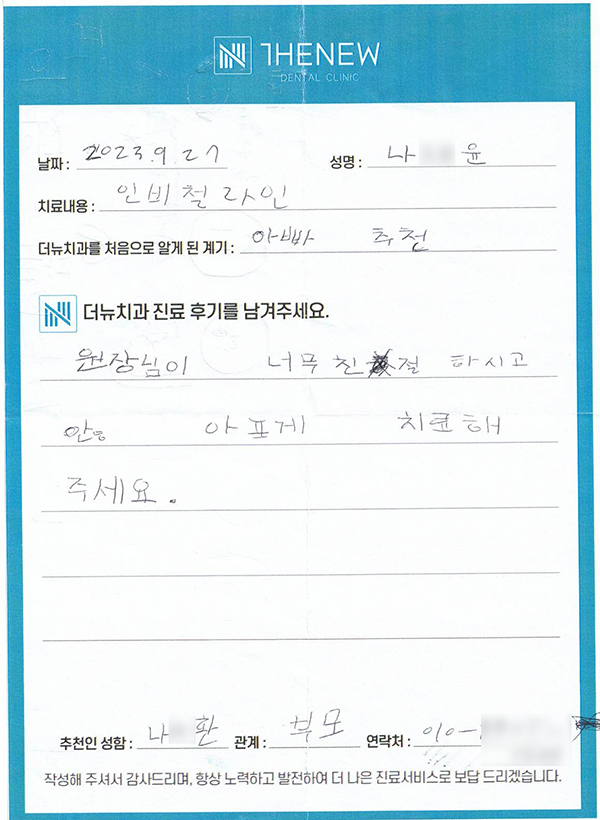 THENEW
DENTAL CLINIC
날짜 : 2023.9.27 성명 : 나 윤
치료내용 : 인비철라인
더뉴치과를 처음으로 알게 된 계기 : 아빠 추천
더뉴치과 진료 후기를 남겨주세요.
원장님이 너무 친절 하시고
안 아프게 치료해
주세요.
추천인 성함 : 나 환 관계 : 부모 연락처 : 010-
작성해 주셔서 감사드리며, 항상 노력하고 발전하여 더 나은 진료서비스로 보답 드리겠습니다.